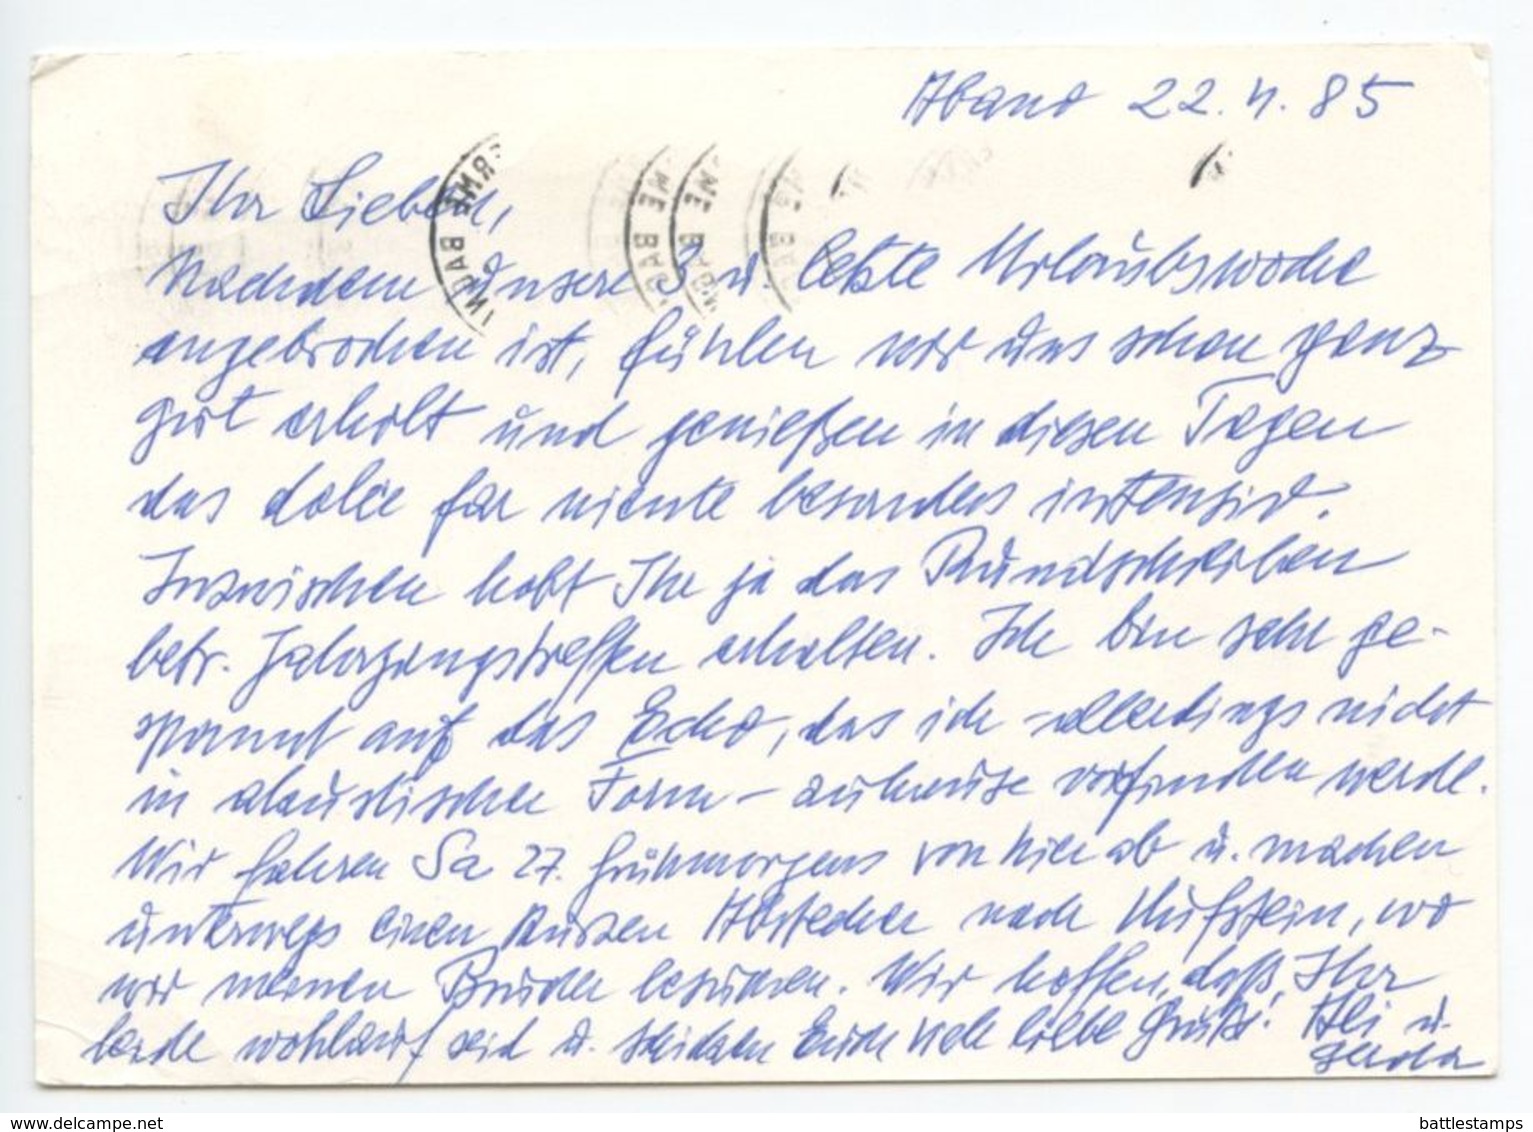 Abano 22.4.85
Ihr Lieben,
Nachdem unsere 3. u. letzte Urlaubswoche
angebrochen ist, fühlen wir uns schon ganz
gut erholt und genießen in diesen Tagen
das dolce far niente besonders intensiv.
Inzwischen habt Ihr ja das Rundschreiben
betr. Jahrgangstreffen erhalten. Ich bin sehr ge-
spannt auf das Echo, das ich - allerdings nicht
in akustischer Form - zuhause vorfinden werde.
Wir fahren Sa 27. frühmorgens von hier ab u. machen
unterwegs einen kurzen Abstecher nach Kufstein, wo
wir meinen Bruder besuchen. Wir hoffen, daß Ihr
beide wohlauf seid u. schicken Euch viele liebe Grüße! Ali u.
Gerda
TERME
ABANO
ME BAG
battlestamps
www.delcampe.net